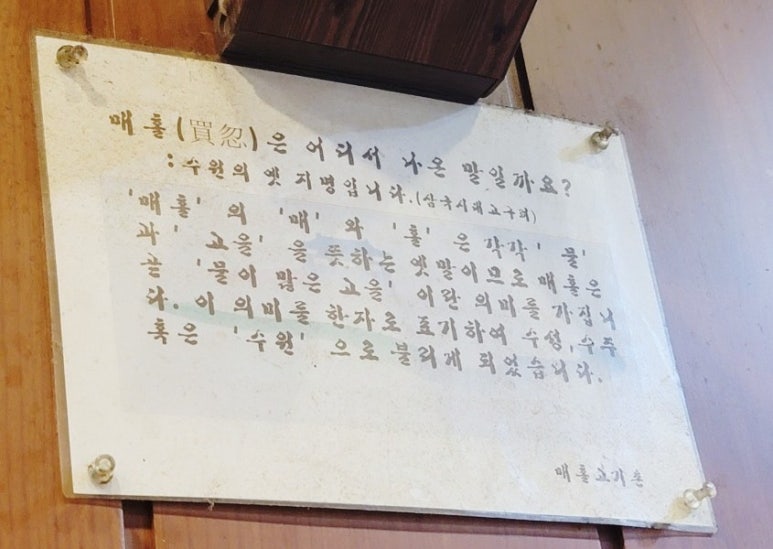 매홀(買忽)은 어디서 나온 말일까요?
:수원의 옛 지명입니다.(삼국시대고구려)
'매홀' 의 '매' 와 '홀' 은 각각 ' 물'
과 ' 고을' 을 뜻하는 옛말이므로 매홀은
곧 '물이 많은 고을' 이란 의미를 가집니
다. 이 의미를 한자로 표기하여 수성,수주
혹은 '수원' 으로 불리게 되었습니다.
매홀고기촌